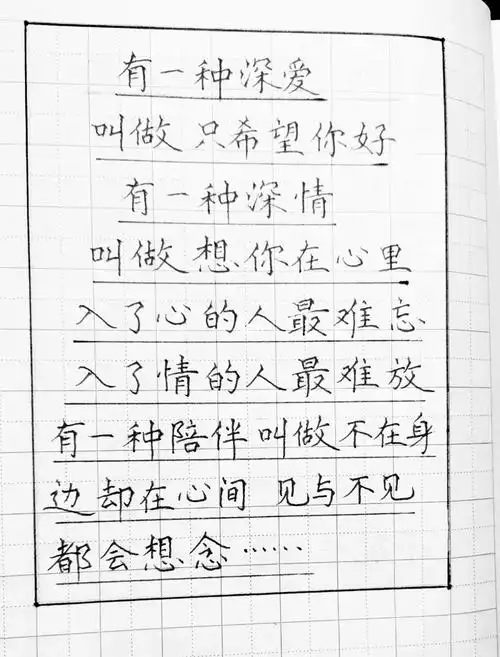 有一种深爱
叫做 只希望你好
有一种深情
叫做想你在心里
入了心的人最难忘
入了情的人最难放
有一种陪伴叫做不在身
边却在心间 见与不见
都会想念……